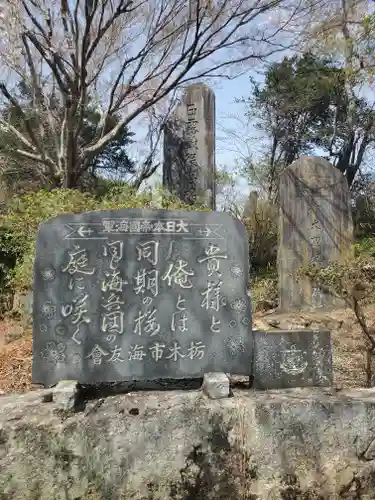 大日本帝國海軍
貴様と
俺とは
同期の桜
同海兵団の
庭に咲く
栃木市海友會